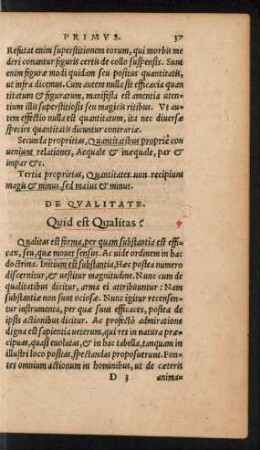 PRIMVS. 37
Refutat enim superstitionem eorum, qui morbis me
deri conantur figuris certis de collo suspensis. Sunt
enim figuræ modi quidam seu positus quantitatis,
ut infra dicemus. Cum autem nulla sit efficacia quan
titatum & figurarum, manifesta est amentia uten-
tium illis superstitiosis seu magicis ritibus. Ut au-
tem effectio nulla est quantitatum, ita nec diuersæ
species quantitatis dicuntur contrariæ.
Secunda proprietas, Quantitatibus propriè con
ueniunt relationes, Aequale & inæquale, par &
impar &c.
Tertia proprietas, Quantitates non recipiunt
magis & minus, sed maius & minus.
DE QVALITATE.
Quid est Qualitas?
Qualitas est forma, per quam substantia est effi-
cax, seu, quæ mouet sensus. Ac uide ordinem in hac
doctrina. Initium est substantia, Hæc posita numero
discernitur, & uestitur magnitudine. Nunc cum de
qualitatibus dicitur, arma ei attribuuntur: Nam
substantiæ non sunt ociosæ. Nunc igitur recensen-
tur instrumenta, per quæ sunt efficaces, postea de
ipsis actionibus dicitur. Ac profectò admiratione
digna est sapientia ueterum, qui res in natura præ-
cipuas, quasi euolutas, & in hac tabella, tanquam in
illustri loco positas, spectandas proposuerunt. Fon-
tes omnium actionum in hominibus, ut de cæteris
D 3 anima-